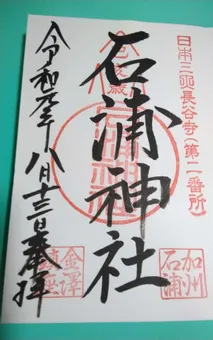 日本三所長谷寺(第二番所)
石浦神社
令和元年八月十三日奉拝
加州
石浦
金澤